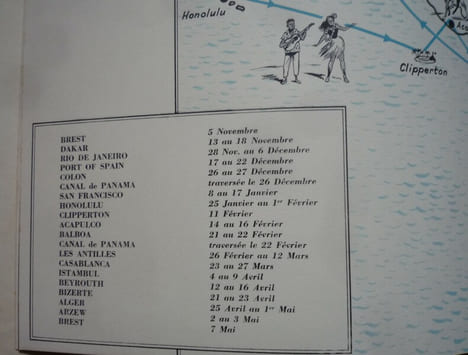 Honolulu
Clipperton
BREST 5 Novembre
DAKAR 13 au 18 Novembre
RIO DE JANEIRO 28 Nov. au 6 Décembre
PORT OF SPAIN 17 au 22 Décembre
COLON 26 au 27 Décembre
CANAL de PANAMA traversée le 26 Décembre
SAN FRANCISCO 8 au 17 Janvier
HONOLULU 25 Janvier au 1er Février
CLIPPERTON 11 Février
ACAPULCO 14 au 16 Février
BALBOA 21 au 22 Février
CANAL de PANAMA traversée le 22 Février
LES ANTILLES 26 Février au 12 Mars
CASABLANCA 23 au 27 Mars
ISTAMBUL 4 au 9 Avril
BEYROUTH 12 au 16 Avril
BIZERTE 21 au 23 Avril
ALGER 25 Avril au 1er Mai
ARZEW 2 au 3 Mai
BREST 7 Mai